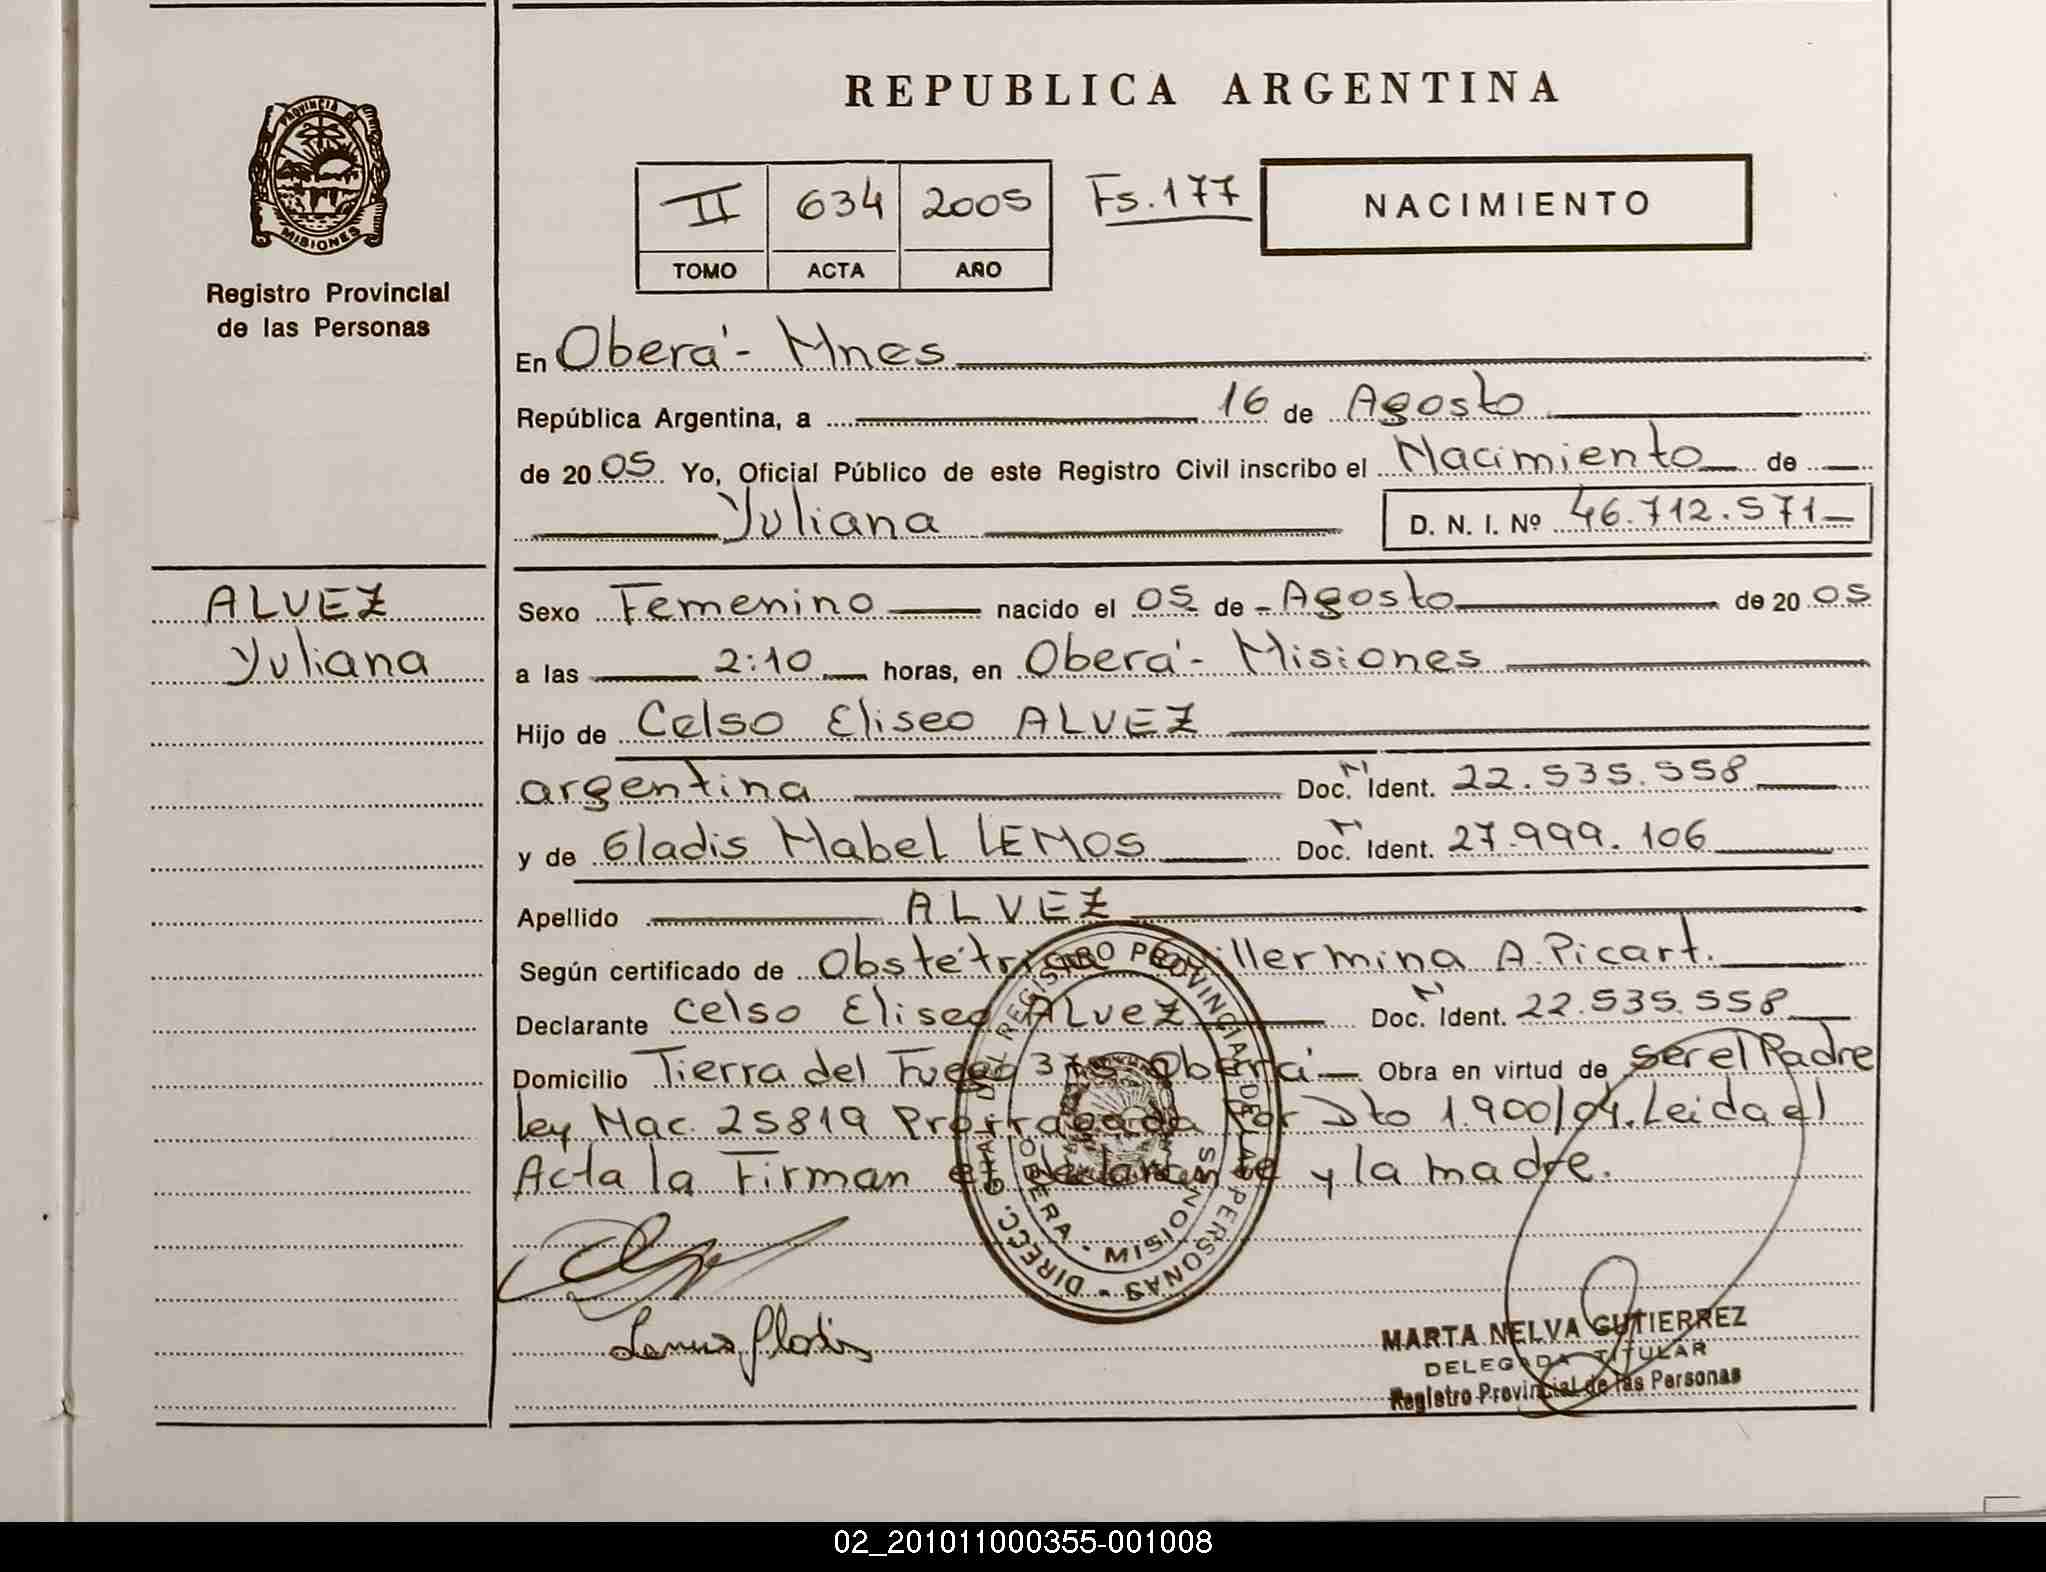 REPUBLICA ARGENTINA
PROVINCIA DE
MISIONES
Registro Provincial
de las Personas
II 634 2005 Fs. 177 NACIMIENTO
TOMO ACTA AÑO
En Oberá - Mnes
República Argentina, a 16 de Agosto
de 2005 Yo, Oficial Público de este Registro Civil inscribo el Nacimiento de
Yuliana D. N. I. Nº 46.712.571
ALVEZ
Yuliana
Sexo Femenino nacido el 05 de Agosto de 2005
a las 2:10 horas, en Oberá - Misiones
Hijo de Celso Eliseo ALVEZ
argentina Doc. N Ident. 22.535.558
y de Gladis Mabel LEMOS Doc. N Ident. 27.999.106
Apellido ALVEZ
Según certificado de Obstétrica Guillermina A. Picart.
Declarante Celso Eliseo ALveZ Doc. N Ident. 22.535.558
Domicilio Tierra del Fuego Oberá Obra en virtud de ser el Padre
ley Nac. 25819 Prorrogada Por Dto 1.900/04. Leida el
Acta la Firman el declarante y la madre.
DIRECC. GRAL. DEL REGISTRO PROVINCIAL DE LAS PERSONAS
OBERA - MISIONES
Lemos Gladis
MARTA NELVA GUTIERREZ
DELEGADA TITULAR
Registro Provincial de las Personas
02_201011000355-001008